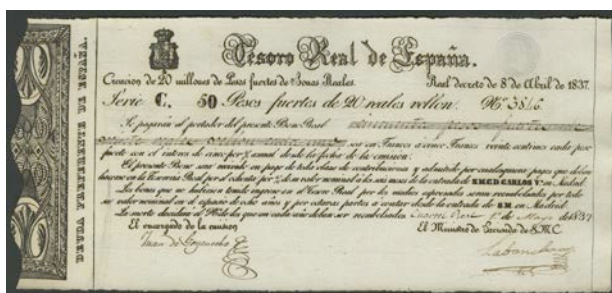 Tesoro Real de España.
Creacion de 20 millones de Pesos fuertes de Bonos Reales. Real decreto de 8 de Abril de 1837.
Serie C. 50 Pesos fuertes de 20 reales vellon. Nº 3546.
Se pagarán al portador del presente Bono Real cincuenta pesos fuertes
sea en Francos a cinco Francos veinte centimos cada peso
fuerte con el interes de cinco por % annual desde la fecha de la emision.
El presente Bono sera tomado en pago de toda clase de contribuciones y admitido por cualesquiera pagos que deban
hacerse en la Tesoreria Real por el valor nominal á los seis meses de la entrada de S.M.C.D. CARLOS Vº en Madrid.
Los bonos que no hubiesen tenido ingreso en el Tesoro Real por los medios espresados seran reembolsados por todo
su valor nominal en el espacio de ocho años y por octavas partes a contar desde la entrada de S.M. en Madrid.
La suerte decidirá el que en cada año deban ser reembolsados Cuartel Real 1º de Mayo de 1837
El encargado de la emision El Ministro de Hacienda de S.M.C.
Juan de Labandero
DEUDA DE ESPAÑA.